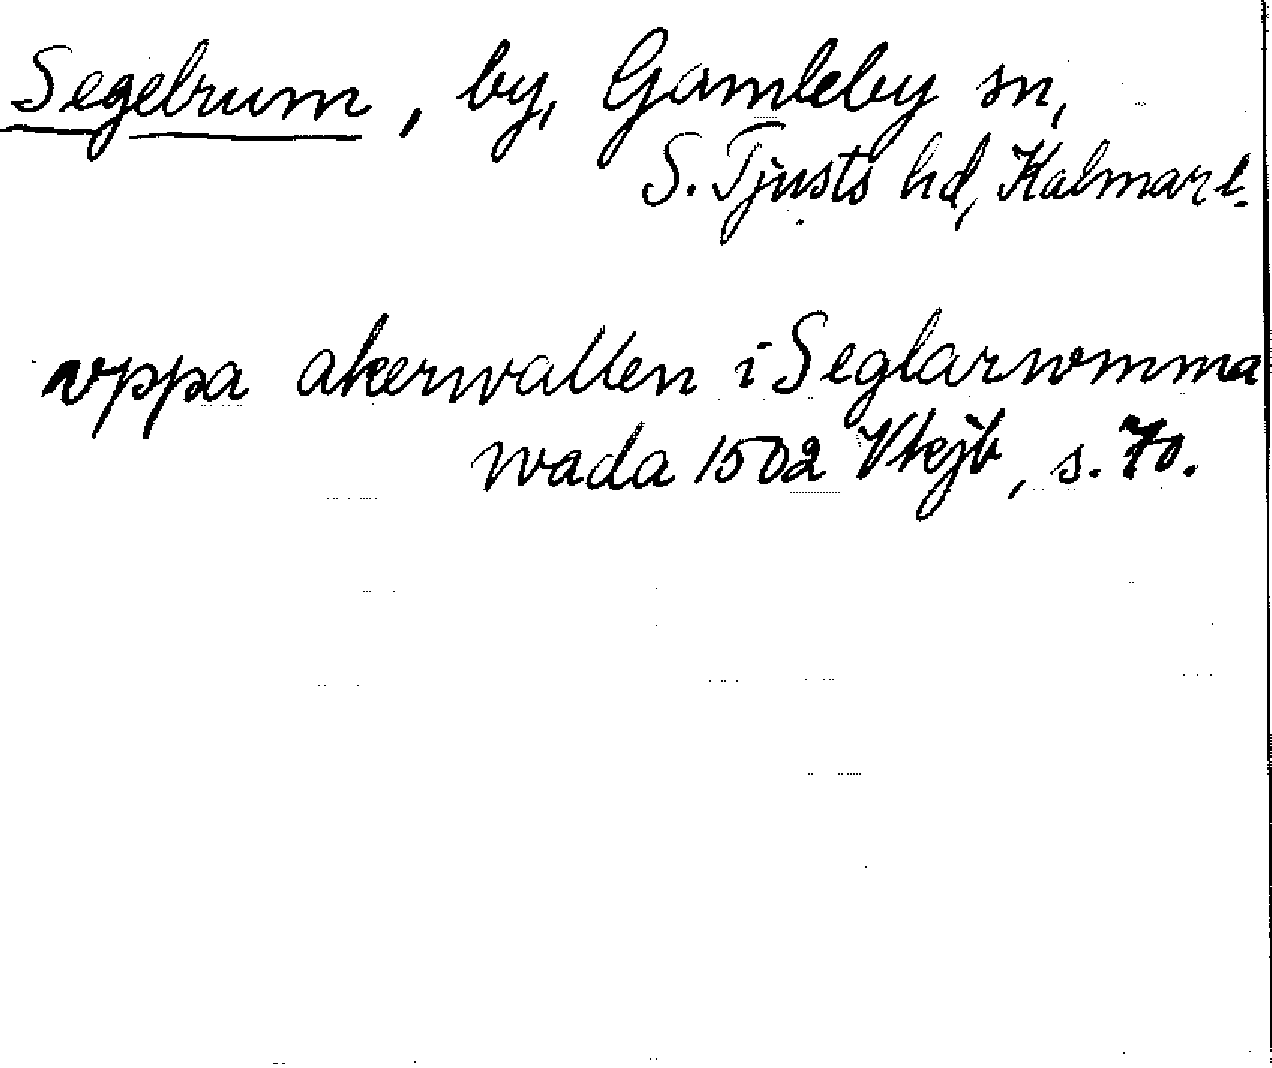 Segelrum, by, Gamleby sn,
S. Tjusts hd, Kalmar l.
vppa akerwallen i Seglarwmma
wada 1502 Vkjb, s. 70.